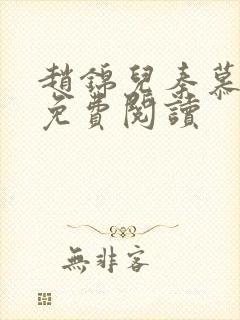 趙錦兒秦慕
免費閱讀
無非客